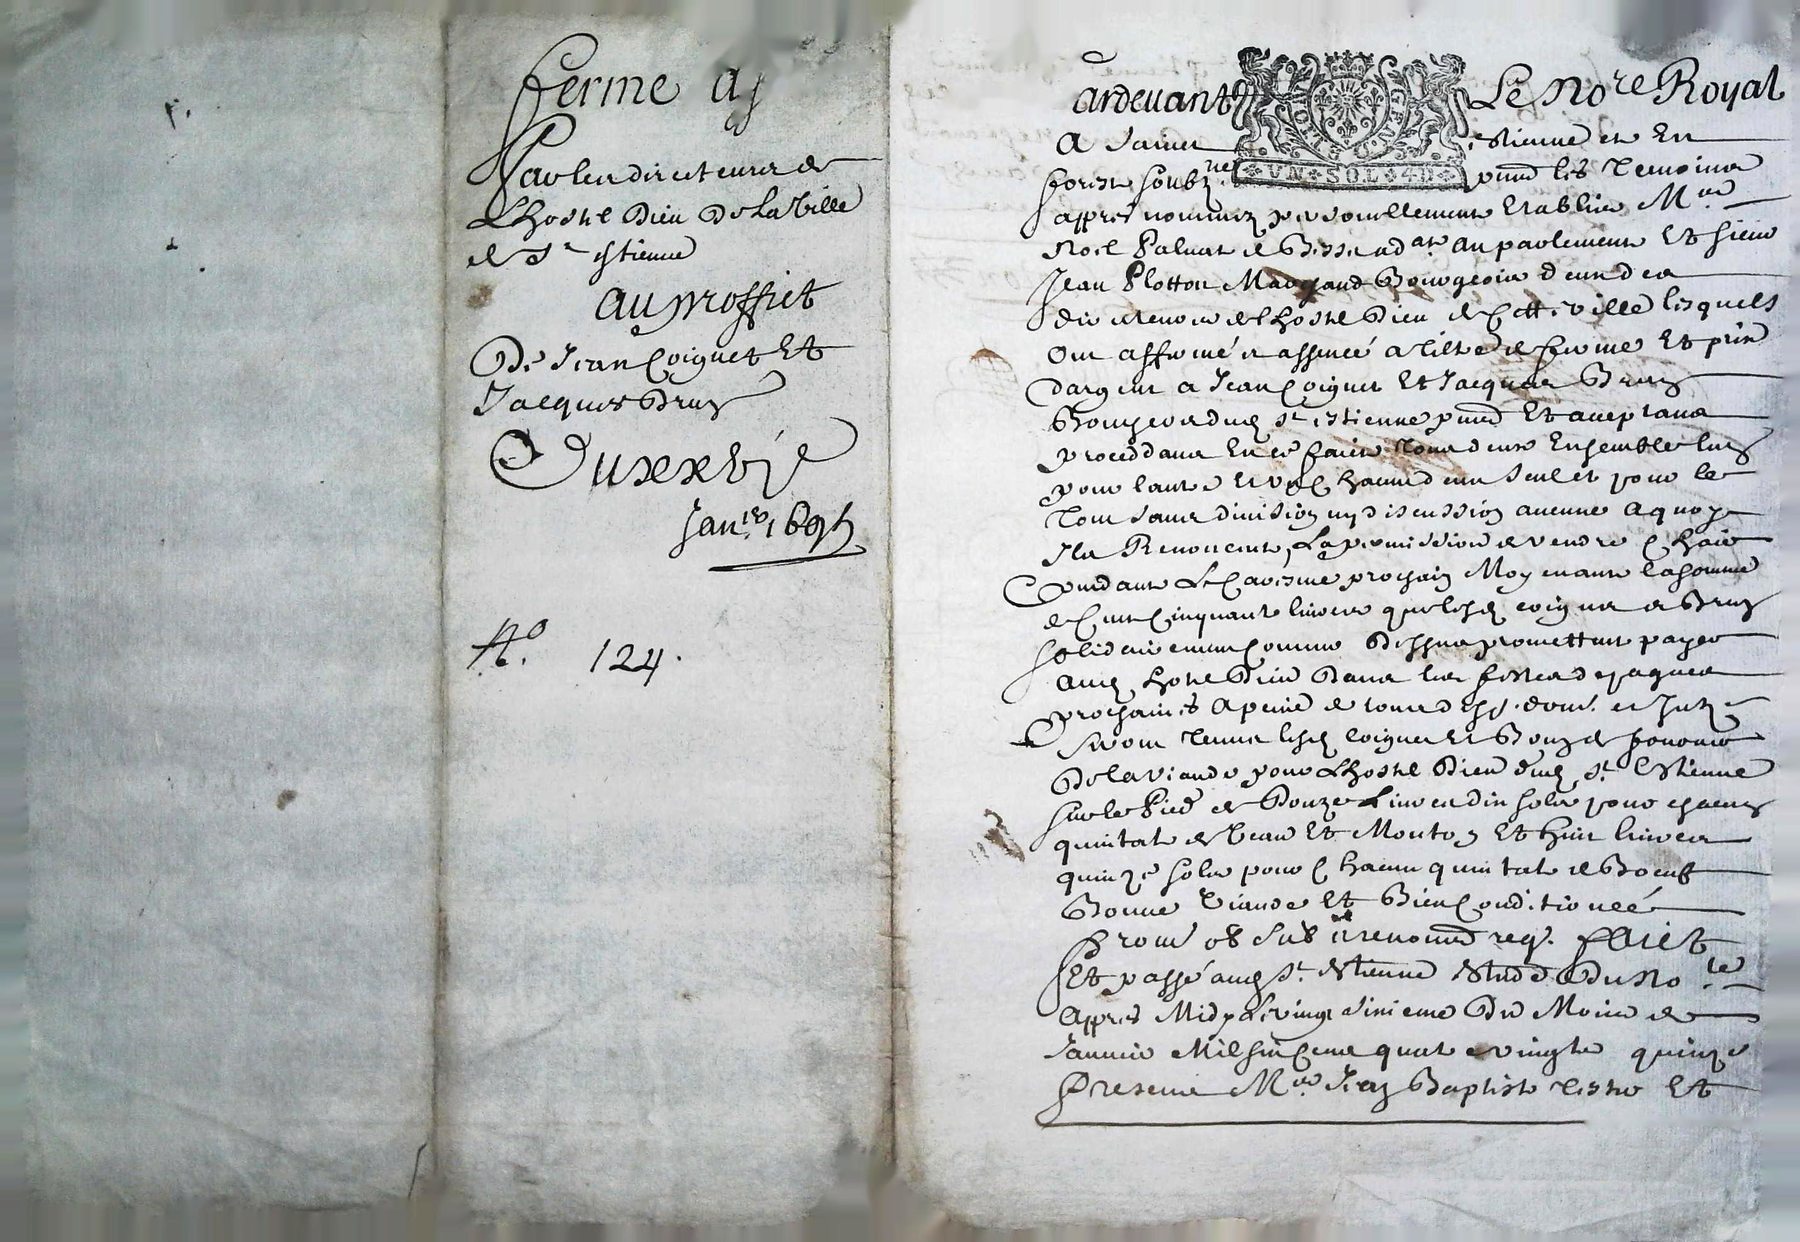 Ferme
Par les directeurs de
Lhostel Dieu De La Ville
de St estienne
Au proffict
De Jean Coignet Et
Jacques Bruz
Du xxvje
Janer 1695
No. 124.
Pardevant Le Nore Royal
A Sainct Estienne et En
forest soubzne pnt les Temoins
appres nommez personnellement Establis Mre
Noel Paluat de Besset adat Au parlement Et sieur
Jean Plotton Marchand Bourgeois deux des
directeurs de Lhostel Dieu de Cette ville lesquels
Ont affermé et assencé a tiltre de ferme Et prix
dargent a Jean Coignet Et Jacques Bruz
Bouchers dud St Estienne pnts Et aceptans
proceddans En ce faict Tous deux Ensemble lung
pour lautre et Ung Chacun deux seul et pour le
Tout sans division ny discussion aucune a quoy
Ils Renoncent, La permission de vendre Chair
Pendant Le Caresme prochain Moyenant la somme
de Cent Cinquante livres que lesd Coignet et Bruz
solidairement Comme Dessus promettent payer
Aud hostel Dieu Dans les festes de paques
prochaines A peine de tous desp. dom. et Intz
seront Tenus lesd Coignet Et Bruz de fournir
De la viande pour Lhostel Dieu dud St Estienne
sur le Pied de Douze Livres dix sols pour chacung
quintal de Veau Et Mouton Et huit livres
quinze sols pour Chacun quintal de Boeuf
Bonne Viande Et Bien Conditionnée
Prom ob sub et renonc req. Faict
Et passé aud St Estienne Estude Du Nore
Appres Midy Le vingt sixieme Du Mois de
Janvier Mil six Cens quatre vingts quinze
Presens Mre Jean Baptiste Et
UN SOL 4 D